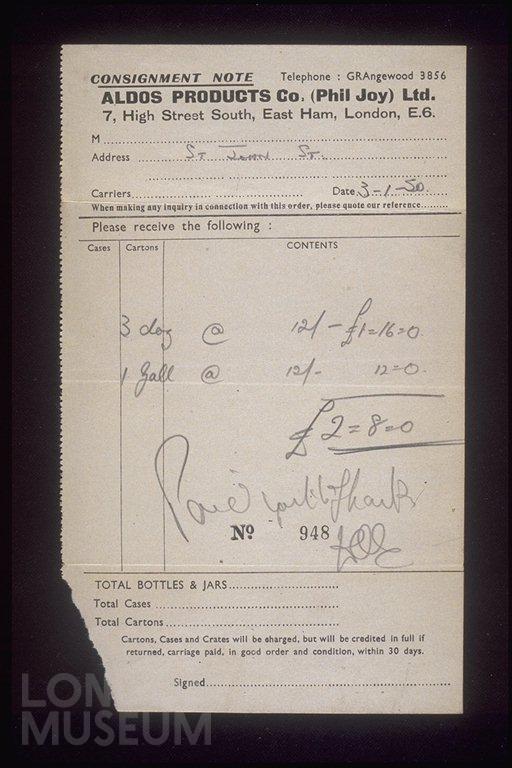 CONSIGNMENT NOTE Telephone : GRAngewood 3856
ALDOS PRODUCTS Co. (Phil Joy) Ltd.
7, High Street South, East Ham, London, E.6.
M
Address St John St.
Carriers Date 3-1-50
When making any inquiry in connection with this order, please quote our reference
Please receive the following :
Cases Cartons CONTENTS
3 doz @ 12/- £1=16=0
1 Gall @ 12/- 12=0
£2=8=0
Paid with thanks
No 948
TOTAL BOTTLES & JARS
Total Cases
Total Cartons
Cartons, Cases and Crates will be charged, but will be credited in full if
returned, carriage paid, in good order and condition, within 30 days.
Signed
MUSEUM